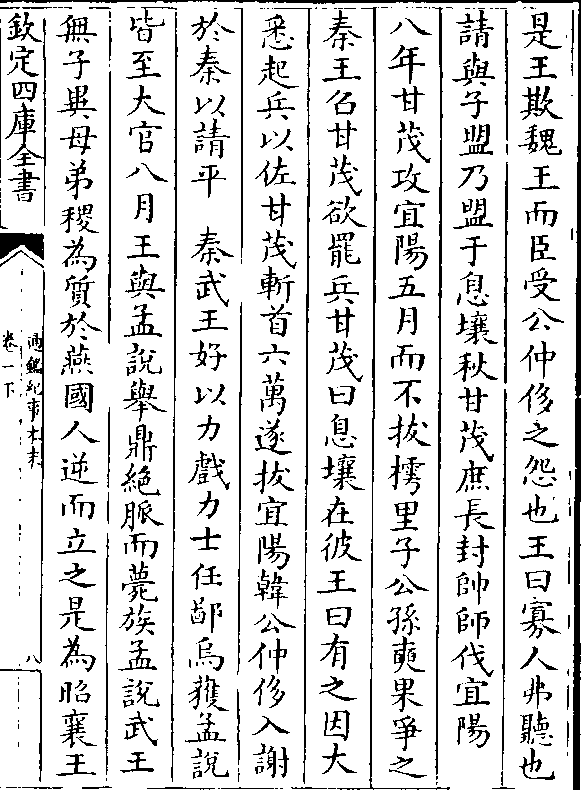 是王欺魏王而臣受公仲侈之怨也王曰寡人弗聽也
請與子盟乃盟于息壤秋甘茂庶長封帥師伐宜陽
八年甘茂攻宜陽五月而不拔樗里子公孫奭果爭之
秦王召甘茂欲罷兵甘茂曰息壤在彼王曰有之因大
悉起兵以佐甘茂斬首六萬遂拔宜陽韓公仲侈入謝
於秦以請平　秦武王好以力戲力士任鄙烏獲孟說
皆至大官八月王與孟說舉鼎絕脈而薨族孟說武王
無子異母弟稷為質於燕國人逆而立之是為昭襄王
欽定四庫全書
通鑑紀事本末
卷一下
八